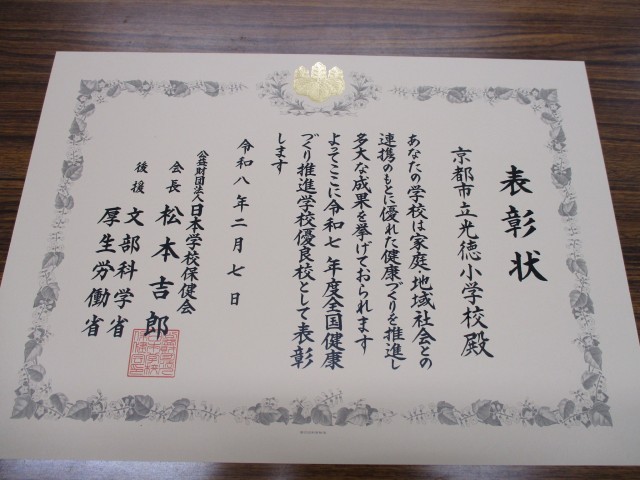 表彰状
京都市立光徳小学校殿
あなたの学校は家庭・地域社会との
連携のもとに優れた健康づくりを推進し
多大な成果を挙げておられます
よってここに令和七年度全国健康
づくり推進学校優良校として表彰
します
令和八年二月七日
公益財団法人日本学校保健会
会長 松本吉郎
後援 文部科学省
厚生労働省